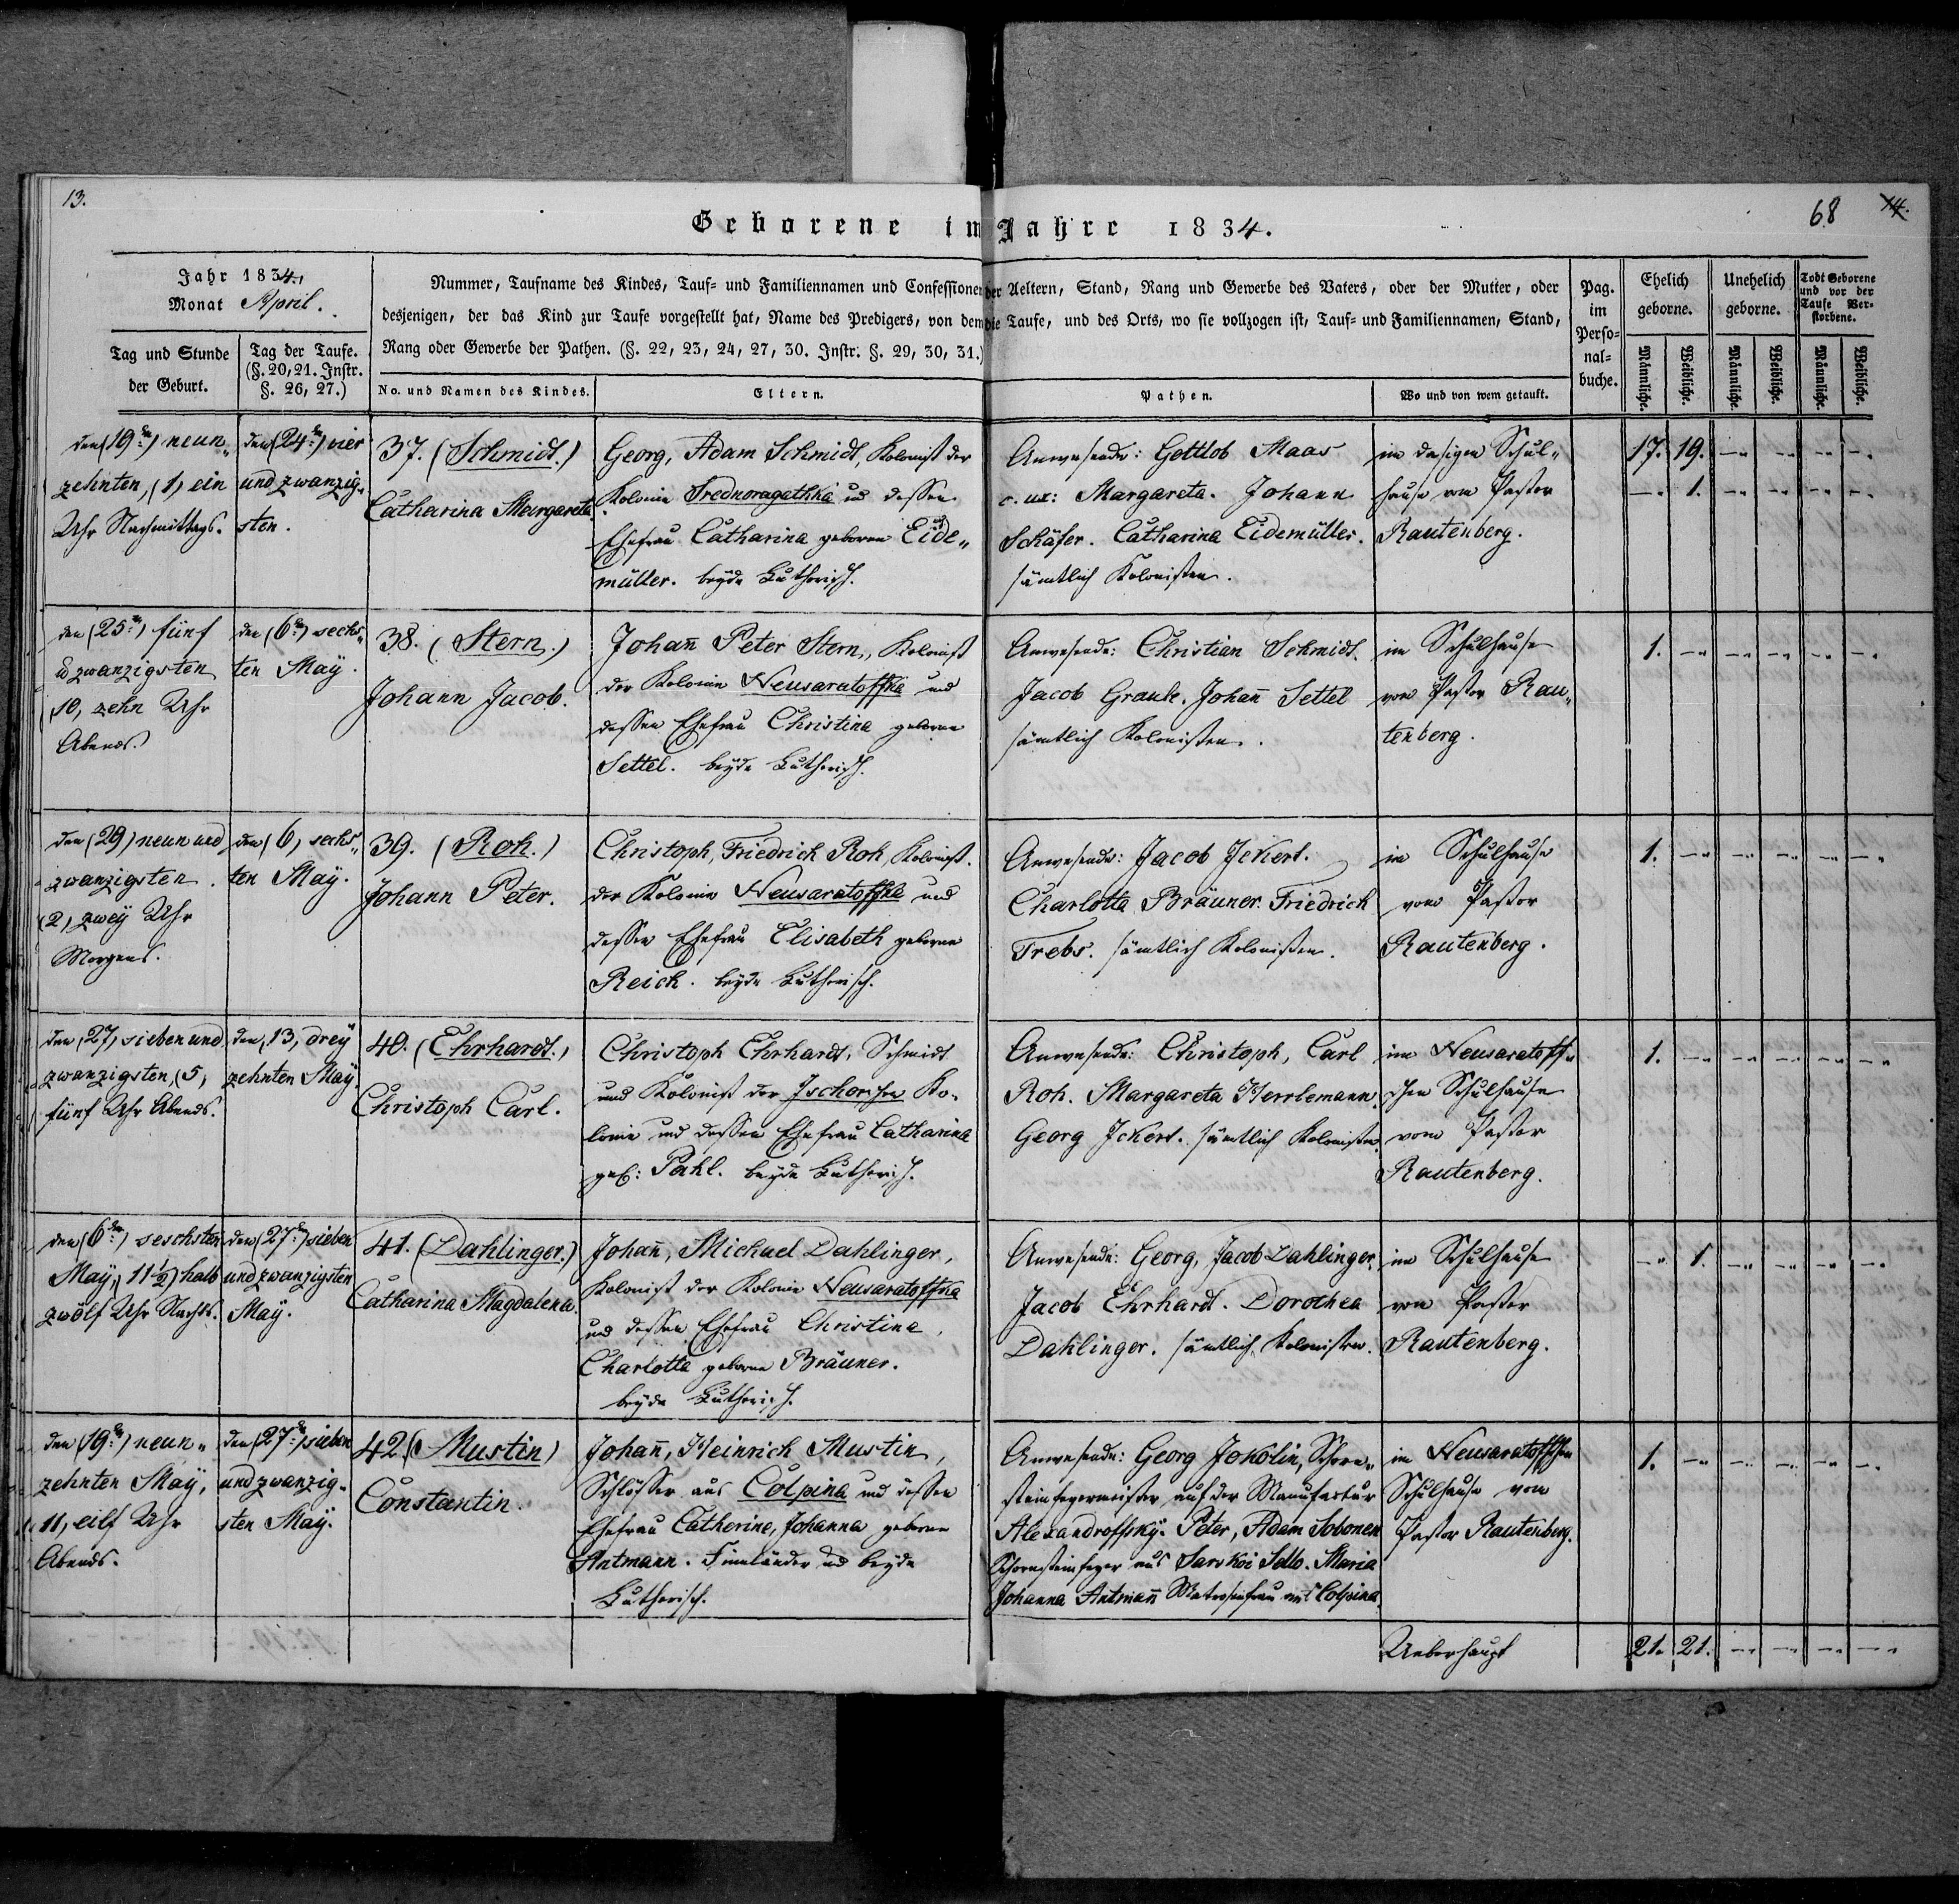 13.
68
14.
Geborene im Jahre 1834.
Jahr 1834,
Monat April.
Nummer, Taufname des Kindes, Tauf- und Familiennamen und Confessionen der Aeltern, Stand, Rang und Gewerbe des Vaters, oder der Mutter, oder
desjenigen, der das Kind zur Taufe vorgestellt hat, Name des Predigers, von dem die Taufe, und des Orts, wo sie vollzogen ist, Tauf- und Familiennamen, Stand,
Rang oder Gewerbe der Pathen. (§. 22, 23, 24, 27, 30. Instr. §. 29, 30, 31.)
Tag und Stunde
der Geburt.
Tag der Taufe.
(§. 20, 21. Instr.
§. 26, 27.)
No. und Namen des Kindes.
Eltern.
Pathen.
Wo und von wem getauft.
Pag.
im
Perso-
nal-
buche.
Ehelich
geborne.
Unehelich
geborne.
Todt Geborene
und vor der
Taufe Ver-
storbene.
Männliche.
Weibliche.
Männliche.
Weibliche.
Männliche.
Weibliche.
den (19ten) neun„
zehnten, (1) ein
Uhr Nachmittags.
den (24ten) vier
und zwanzig„
sten.
37. (Schmidt.)
Catharina Margareta.
Georg, Adam Schmidt, Kolonist der
Kolonie Srednoragathka und dessen
Ehefrau Catharina geboren Eide„
müller. beyde Lutherisch.
Anwesende: Gottlob Maas
c. ux: Margareta. Johann
Schäfer. Catharina Eidemüller.
sämtlich Kolonisten.
im dasigen Schul„
hause von Pastor
Rautenberg.
17. 19. —„ —„ —„ —„
—„ 1. —„ —„ —„ —„
den (25ten) fünf
u zwanzigsten
(10, zehn Uhr
Abends.
den (6ten) sechs„
ten Maÿ.
38. (Stern.)
Johann Jacob.
Johañ Peter Stern, Kolonist
der Kolonie Neusaratoffka und
dessen Ehefrau Christina geborne
Settel. beyde Lutherisch.
Anwesende: Christian Schmidt.
Jacob Graule. Johañ Settel
sämtlich Kolonisten.
im Schulhause
vom Pastor Rau„
tenberg.
1. —„ —„ —„ —„ —„
den (29) neun und
zwanzigsten.
(2) zweÿ Uhr
Morgens.
den (6, sechs„
ten Maÿ.
39. (Roh.)
Johann Peter.
Christoph, Friedrich Roh, Kolonist.
der Kolonie Neusaratoffka und
dessen Ehefrau Elisabeth geborne
Reich. beyde Lutherisch.
Anwesende: Jacob Jckert.
Charlotta Bräuner. Friedrich
Trebs. sämtlich Kolonisten.
im Schulhause
vom Pastor
Rautenberg.
1. —„ —„ —„ —„ —„
den (27, sieben und
zwanzigsten, (5,
fünf Uhr Abends.
den, 13, dreÿ
zehnten Maÿ.
40. (Ehrhardt.)
Christoph Carl.
Christoph Ehrhardt, Schmidt
und Kolonist der Jschorschen Ko„
lonie und dessen Ehefrau Catharina
geb: Pahl. beyde Lutherisch.
Anwesende: Christoph, Carl
Roh. Margareta Herrlemann.
Georg Jckert. sämtlich Kolonisten.
im Neusaratoff„
schen Schulhause
vom Pastor
Rautenberg.
1. —„ —„ —„ —„ —„
den (6ten) seschsten
Maÿ, (11½) halb
zwölf Uhr Nachts.
den (27ten) sieben
und zwanzigsten
Maÿ.
41. (Dahlinger.)
Catharina Magdalena.
Johañ, Michael Dahlinger,
Kolonist der Kolonie Neusaratoffka
und dessen Ehefrau Christina,
Charlotta geborne Bräuner.
beyde Lutherisch.
Anwesende: Georg, Jacob Dahlinger.
Jacob Ehrhardt. Dorothea
Dahlinger. sämtlich Kolonisten.
im Schulhause
von Pastor
Rautenberg.
—„ 1. —„ —„ —„ —„
den (19ten) neun„
zehnten Maÿ,
(11, eilf Uhr
Abends.
den (27ten) sieben
und zwanzig„
sten Maÿ.
42. (Mustin)
Constantin.
Johañ, Heinrich Mustin,
Schlösser aus Colpina und dessen
Ehefrau Catherine, Johanna geborne
Antmann. Finnländer und beyde
Lutherisch.
Anwesende: Georg Jokolin, Schorn„
steinfegermeister auf der Manufactur
Alexandroffsky. Peter, Adam Sobonen
Schornsteinfeger aus Sarskoi Sello. Maria
Johanna Antmañ Matrosenfrau aus Colpina.
im Neusaratoffschen
Schulhause vom
Pastor Rautenberg.
1. —„ —„ —„ —„ —„
Ueberhaupt
21. 21. —„ —„ —„ —„